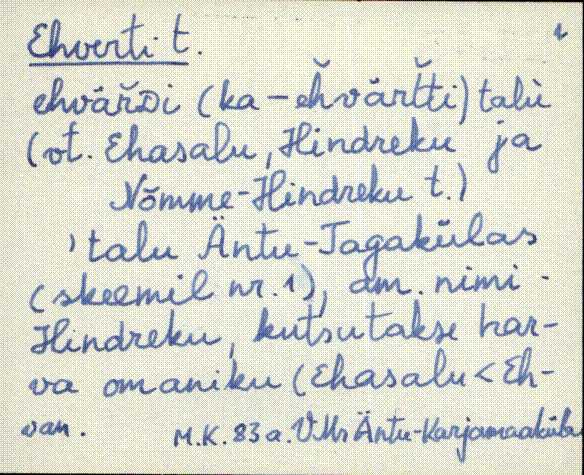 Ehverti t.
ehvär̆ᴅi (ka – ehvär̆tti) talù
(vt. Ehasalu, Hindreku ja
Nõmme-Hindreku t.)
, talu Äntu-Tagakülas
(skeemil nr. 1), am. nimi -
Hindreku, kutsutakse har-
va omaniku (Ehasalu < Eh-
van.
M.K. 83 a. VMr Äntu-Karjamaaküla